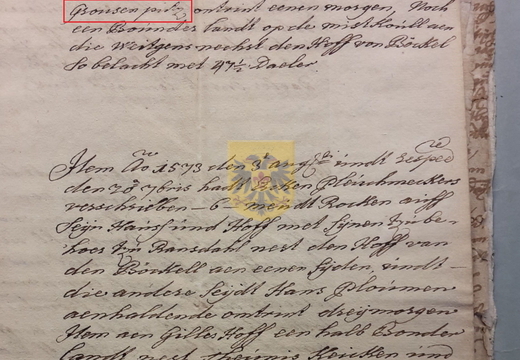 Grousen putz ontrint eenen morgen, Noch
een Bounder landt op de mistKoull aen
die Weitgens nechst den Hoff von Böckel
So belacht met 47½ Daeler
Item Ao 1573 den 3t aug
den 7bris hadt Pleuchmeckers
verschrieben 6 mendt Rocken auff
Seijn Hauss und Hoff met Sijnen
hoes tzu Ransdahl nest den Hoff van
den Böckell aen eenen Sijden, undt
die andere Seijdt Hans Ploumen
aenhaldende ontrint dreij morgen
Item aen Gilles Hoff een halb Bonder
landt nest Keicken und